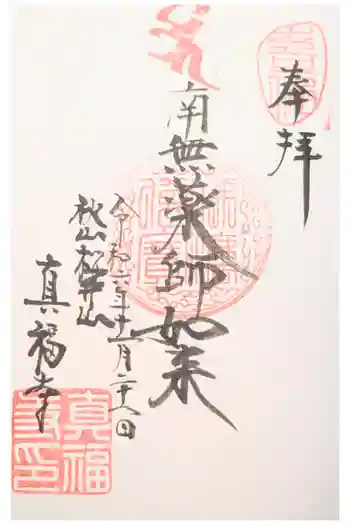 奉拝
南無薬師如来
令和六年十一月二十八日
松井山
真福寺
真福寺印